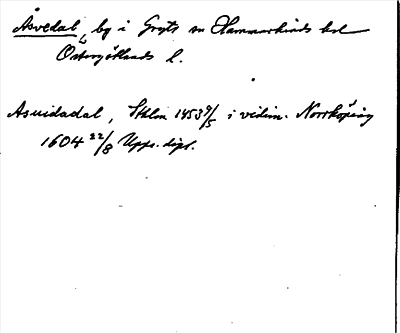 Åsvedal, by i Gryts sn Hammarkinds hd
Östergötlands l.
Asuidadal, Sthlm 1453 9/5 i vidim. Norrköping
1604 22/8 Upps. dipl.